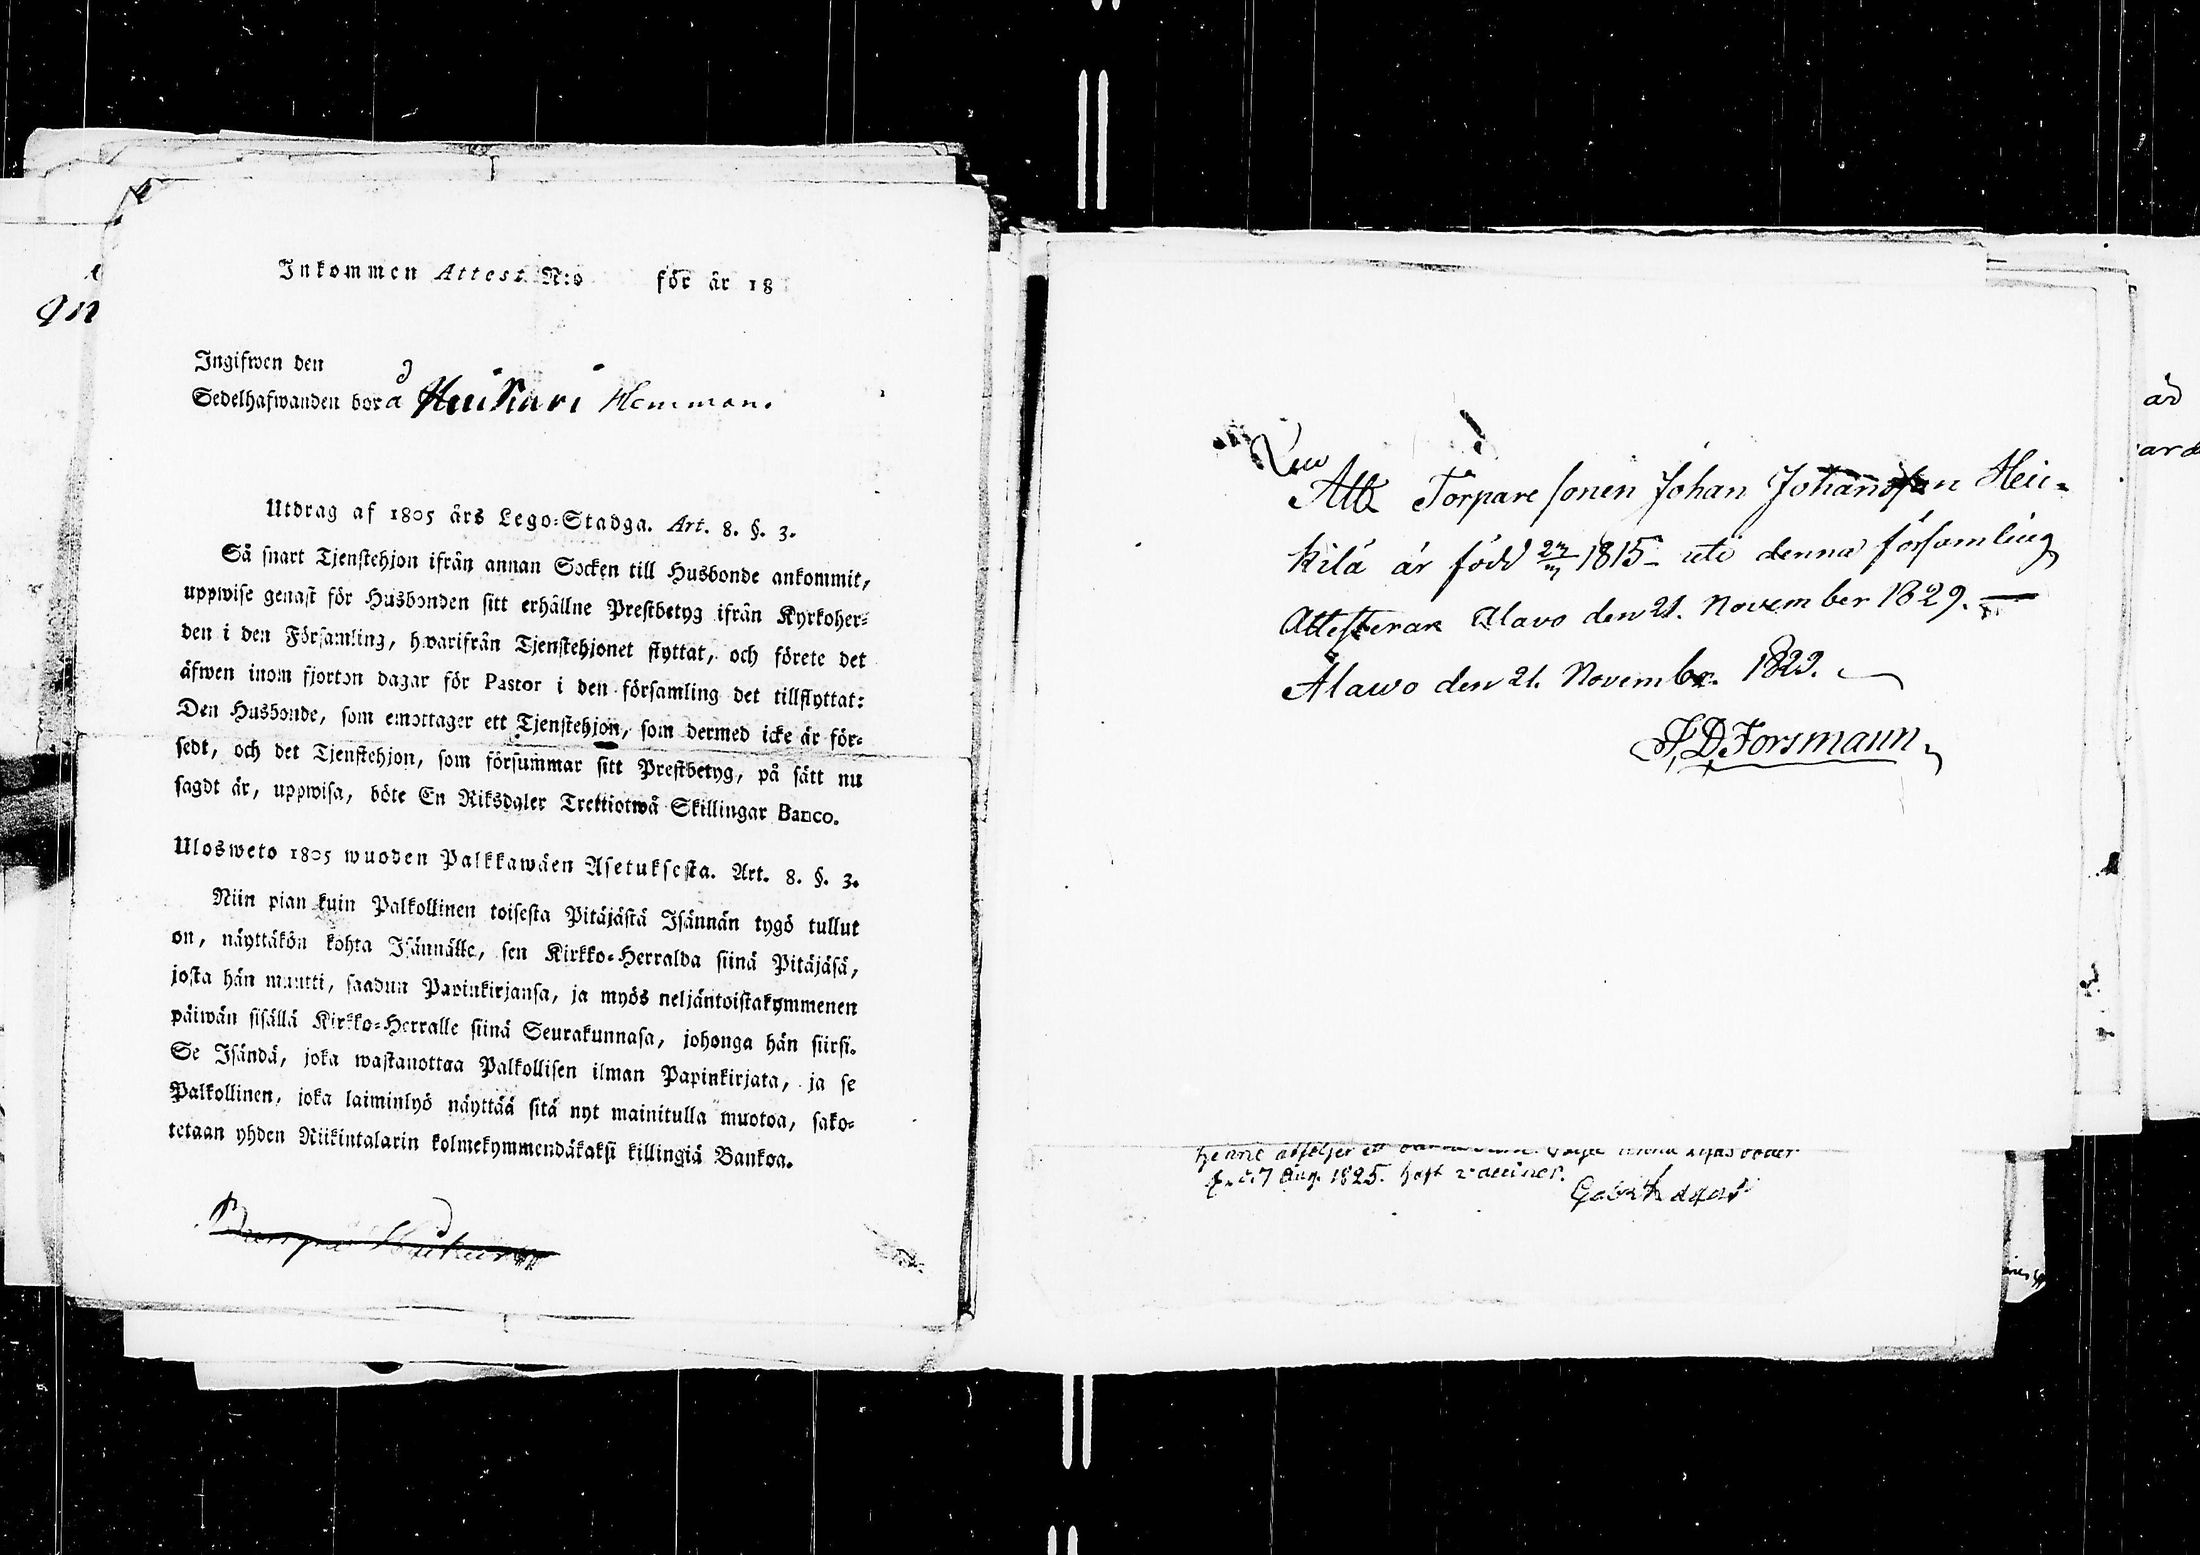 Inkommen Attest N:o för år 18
Ingifwen den
Sedelhafwanden bor å Heikari Hemman.
Utdrag af 1805 års Lego-Stadga. Art. 8. §. 3.
Så snart Tjenstehjon ifrån annan Socken till Husbonde ankommit,
uppwise genast för Husbonden sitt erhållne Prestbetyg ifrån Kyrkoher-
den i den Församling, hwarifrån Tjenstehjonet flyttat, och förete det
äfwen inom fjorton dagar för Pastor i den församling det tillflyttat:
Den Husbonde, som emottager ett Tjenstehjon, som dermed icke är för-
sedt, och det Tjenstehjon, som försummar sitt Prestbetyg, på sätt nu
sagdt är, uppwisa, böte En Riksdaler Trettiotwå Skillingar Banco.
Ulosweto 1805 wuoden Palkkawäen Asetuksesta. Art. 8. §. 3.
Niin pian kuin Palkollinen toisesta Pitäjästä Isännän tygö tullut
on, näyttäkön kohta Isännälle, sen Kirkko-Herralda siinä Pitäjäsä,
josta hän muutti, saadun Papinkirjansa, ja myös neljäntoistakymmenen
päiwän sisällä Kirkko-Herralle siinä Seurakunnasa, johonga hän siirsi.
Se Isändä, joka wastanottaa Palkollisen ilman Papinkirjata, ja se
Palkollinen, joka laiminlyö näyttää sitä nyt mainitulla muotoa, sako-
tetaan yhden Riikintalarin kolmekymmendäkaksi killingiä Bankoa.
Att Torpare sonen Johan Johansson Hei-
kilä är född 1815 - uti denna församling
Attesterar Alavo den 21. November 1829.
Alawo den 21. Novembr. 1829.
J. D. Forsmann
7 Aug. 1825. haft vacciner.
är